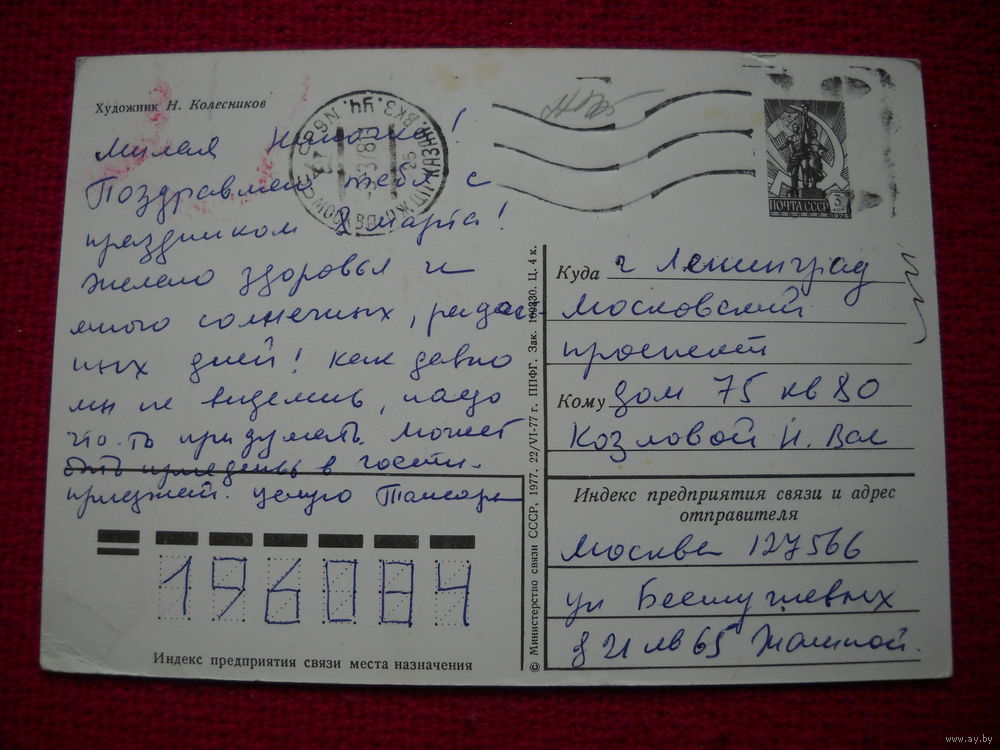 Художник Н. Колесников
Милая Ниночка!
Поздравляю тебя с
праздником 8 марта!
Желаю здоровья и
много солнечных, радост
ных дней! Как давно
мы не виделись, надо
что-то придумать. Может
быть приедешь в гости.
приезжай. целую Тамара
196084
Индекс предприятия связи места назначения
© Министерство связи СССР, 1977. 22/VI-77 г. ППФГ. Зак. Ц. 4 к.
ПОЧТА СССР
1976
Куда г Ленинград
Московский
проспект
Кому дом 75 кв 80
Козловой Н. Вас
Индекс предприятия связи и адрес
отправителя
Москва 127566
ул Бестужевых
д 21 кв 65
www.ay.by